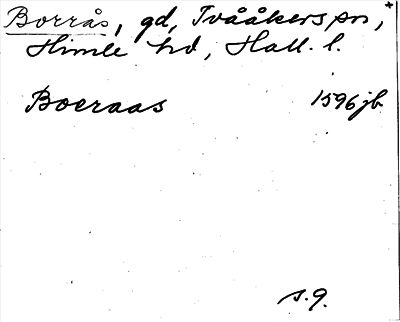 Borrås, gd, Tvååkers sn,
Himle hd, Hall. l.
Boeraas 1596 jb
s. 9.